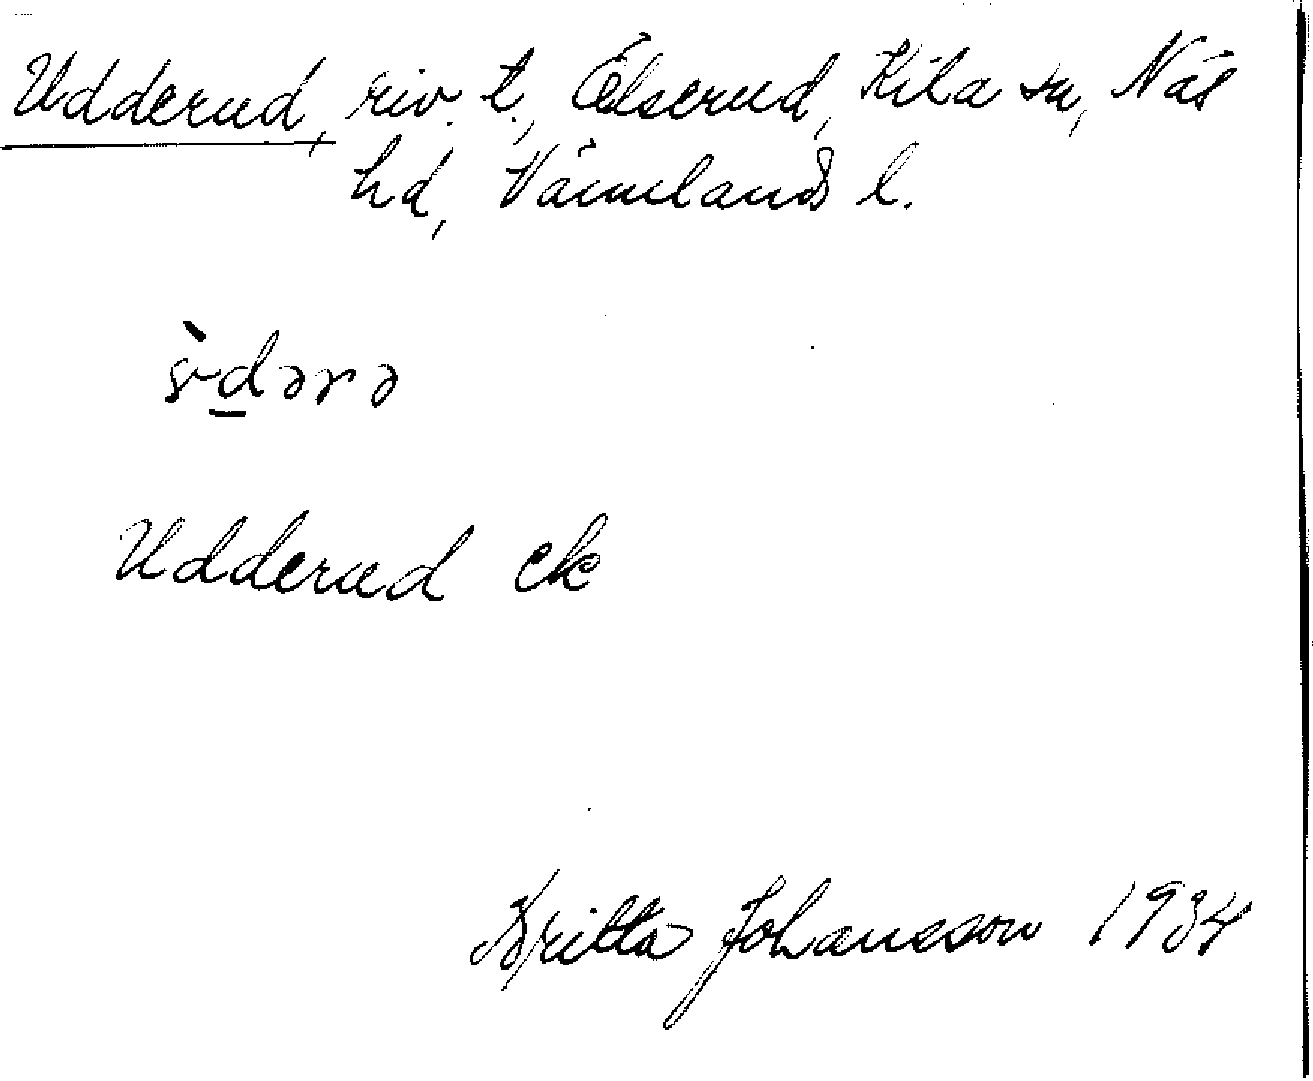 Udderud, riv. t., Elserud, Kila sn, Näs
hd, Värmlands l.
Udderud ek
Britta Johansson 1934